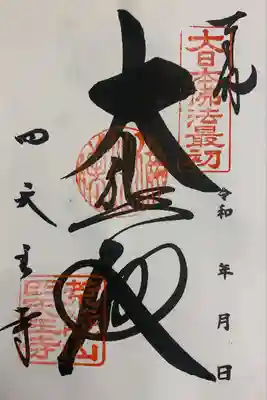 奉拝
大日本佛法最初
令和 年 月 日
大悲殿
四天王寺
荒陵山
四天王寺